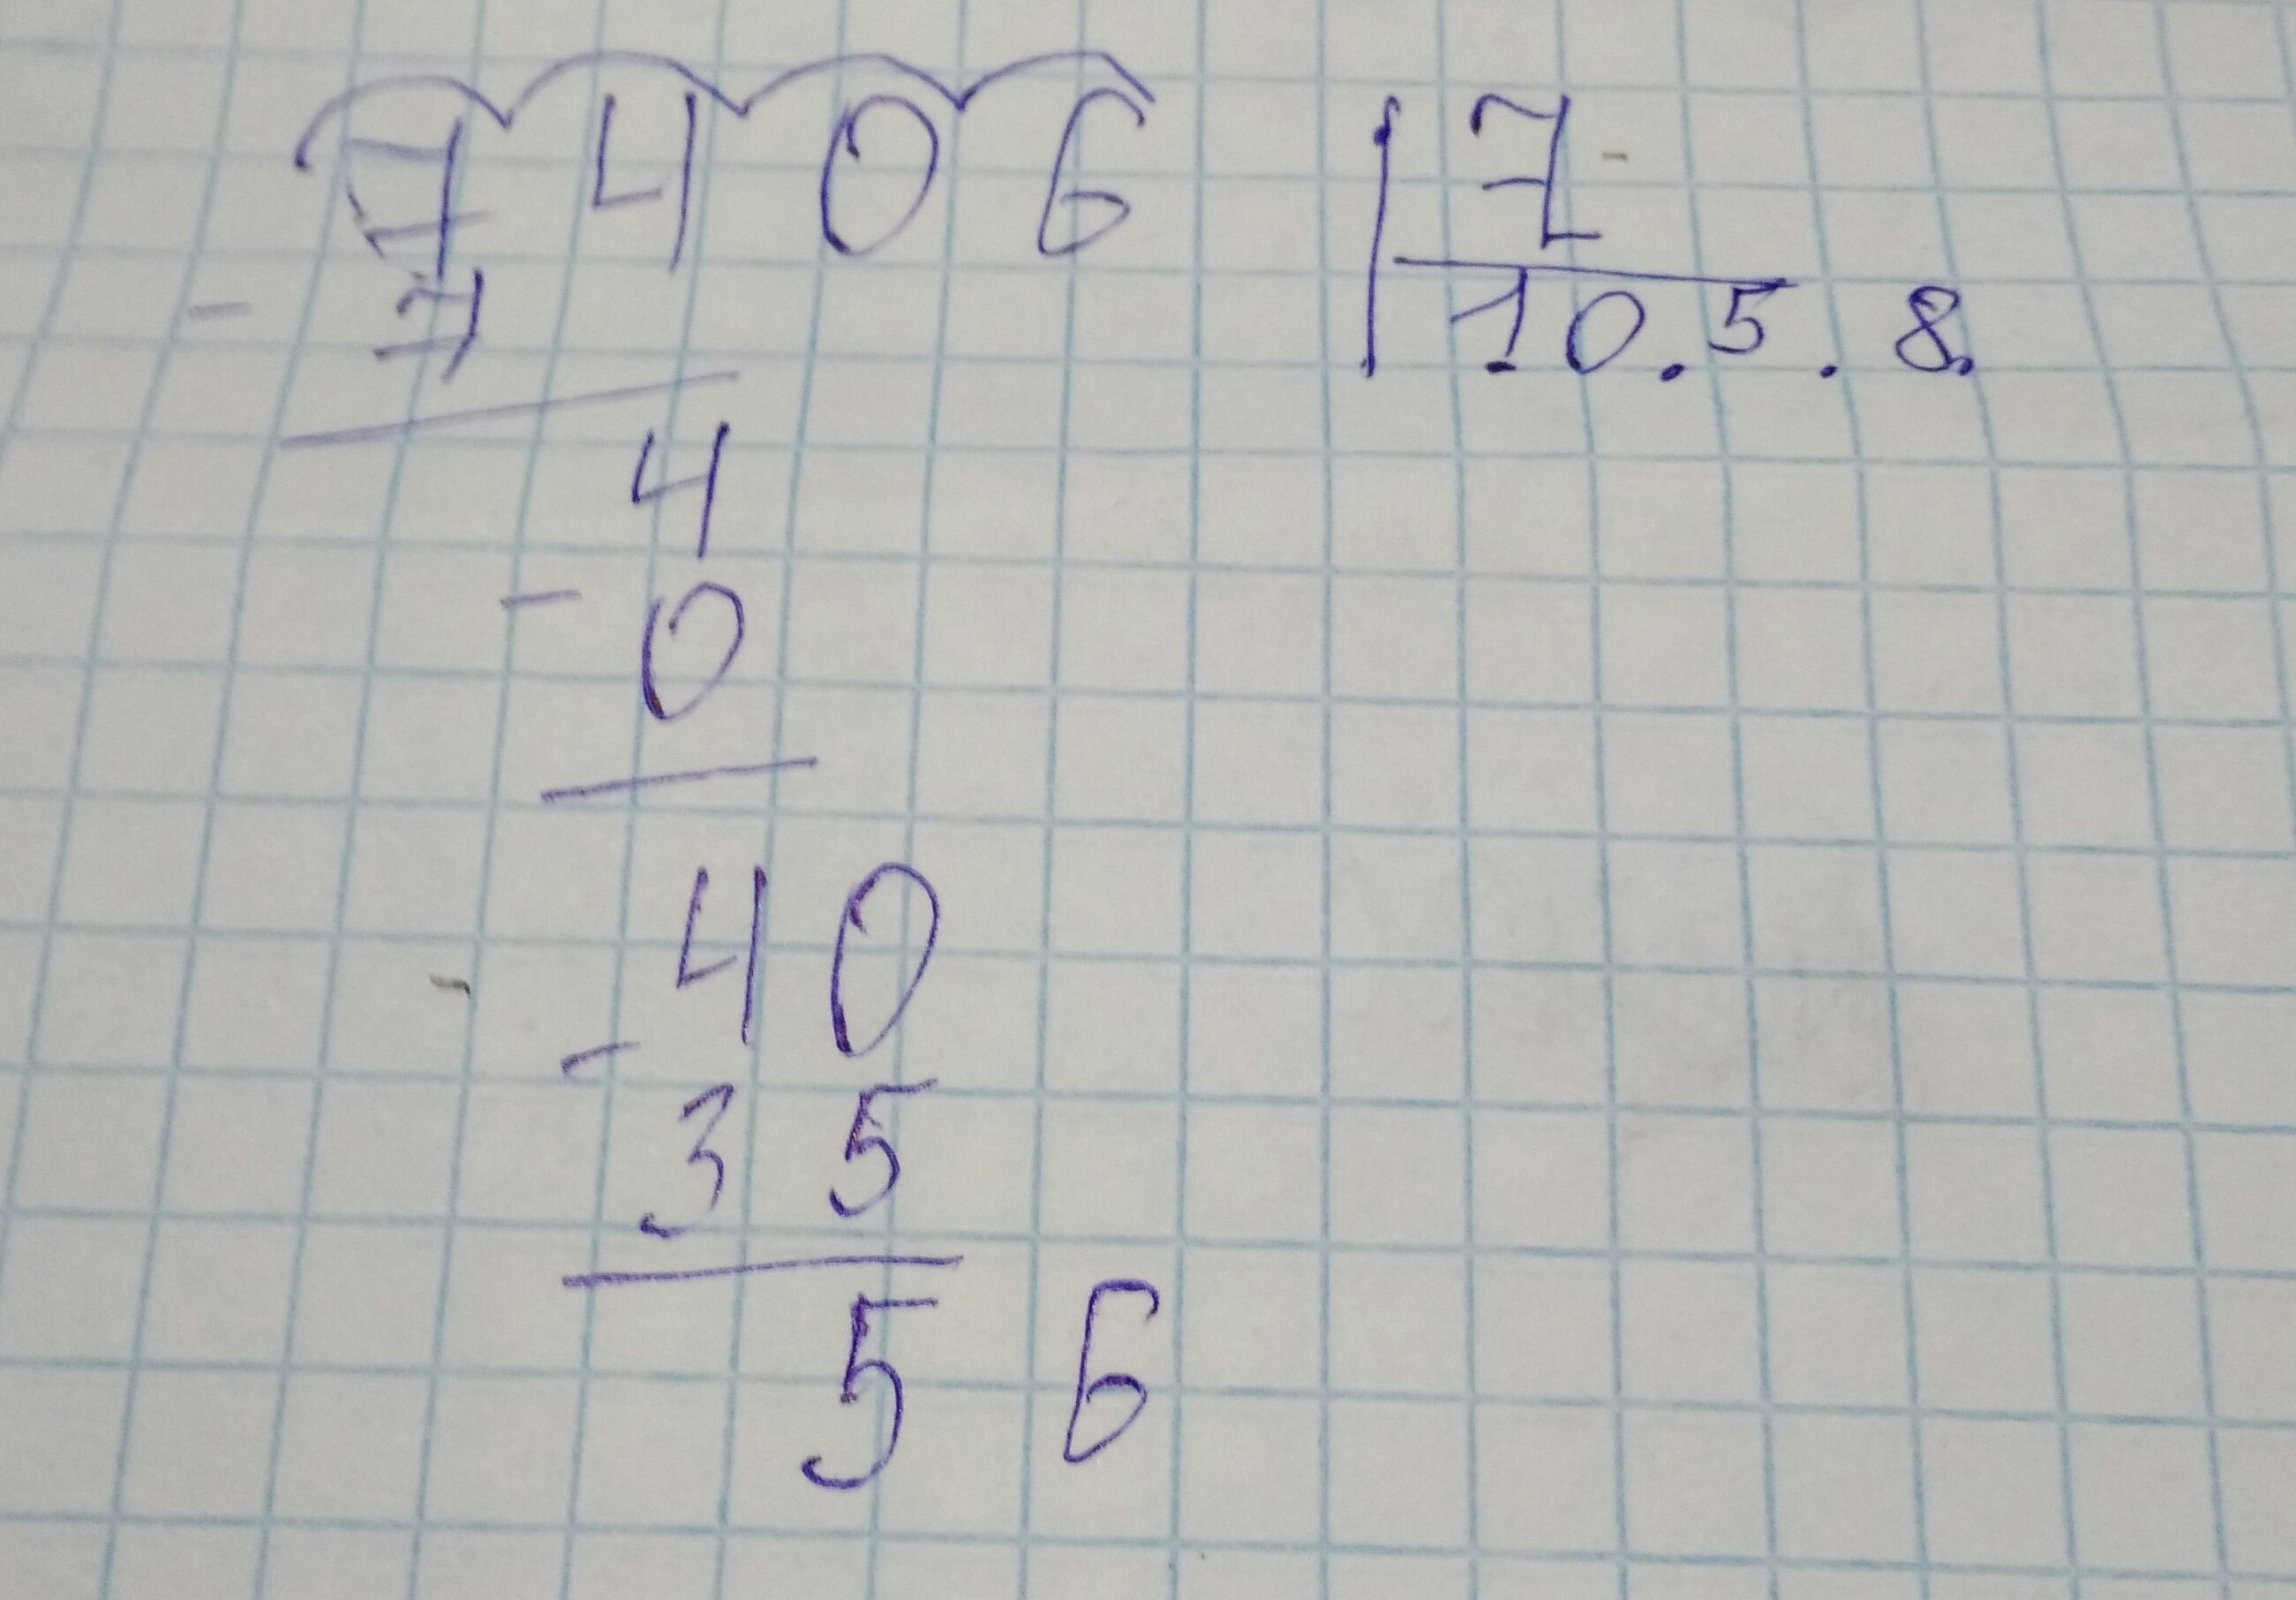 7406 | 7
- 7 | 1058
4
- 0
40
- 35
56